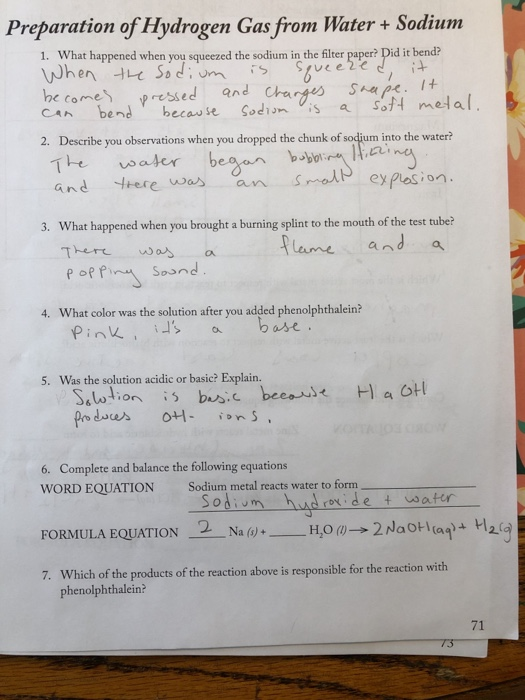 Preparation of Hydrogen Gas from Water + Sodium
1. What happened when you squeezed the sodium in the filter paper? Did it bend?
When the Sodium is squeezed, it
becomes pressed and changes shape. It
can bend because sodium is a soft metal.
2. Describe you observations when you dropped the chunk of sodium into the water?
The water began bubbling/fizzing
and there was an small explosion.
3. What happened when you brought a burning splint to the mouth of the test tube?
There was a flame and a
popping sound.
4. What color was the solution after you added phenolphthalein?
Pink, it's a base.
5. Was the solution acidic or basic? Explain.
Solution is basic because HaOH
produces OH- ions.
6. Complete and balance the following equations
WORD EQUATION Sodium metal reacts water to form
Sodium hydroxide + water
FORMULA EQUATION 2 Na (s) + ____ H₂O (l) → 2 NaOH(aq) + H₂(g)
7. Which of the products of the reaction above is responsible for the reaction with
phenolphthalein?
71
73